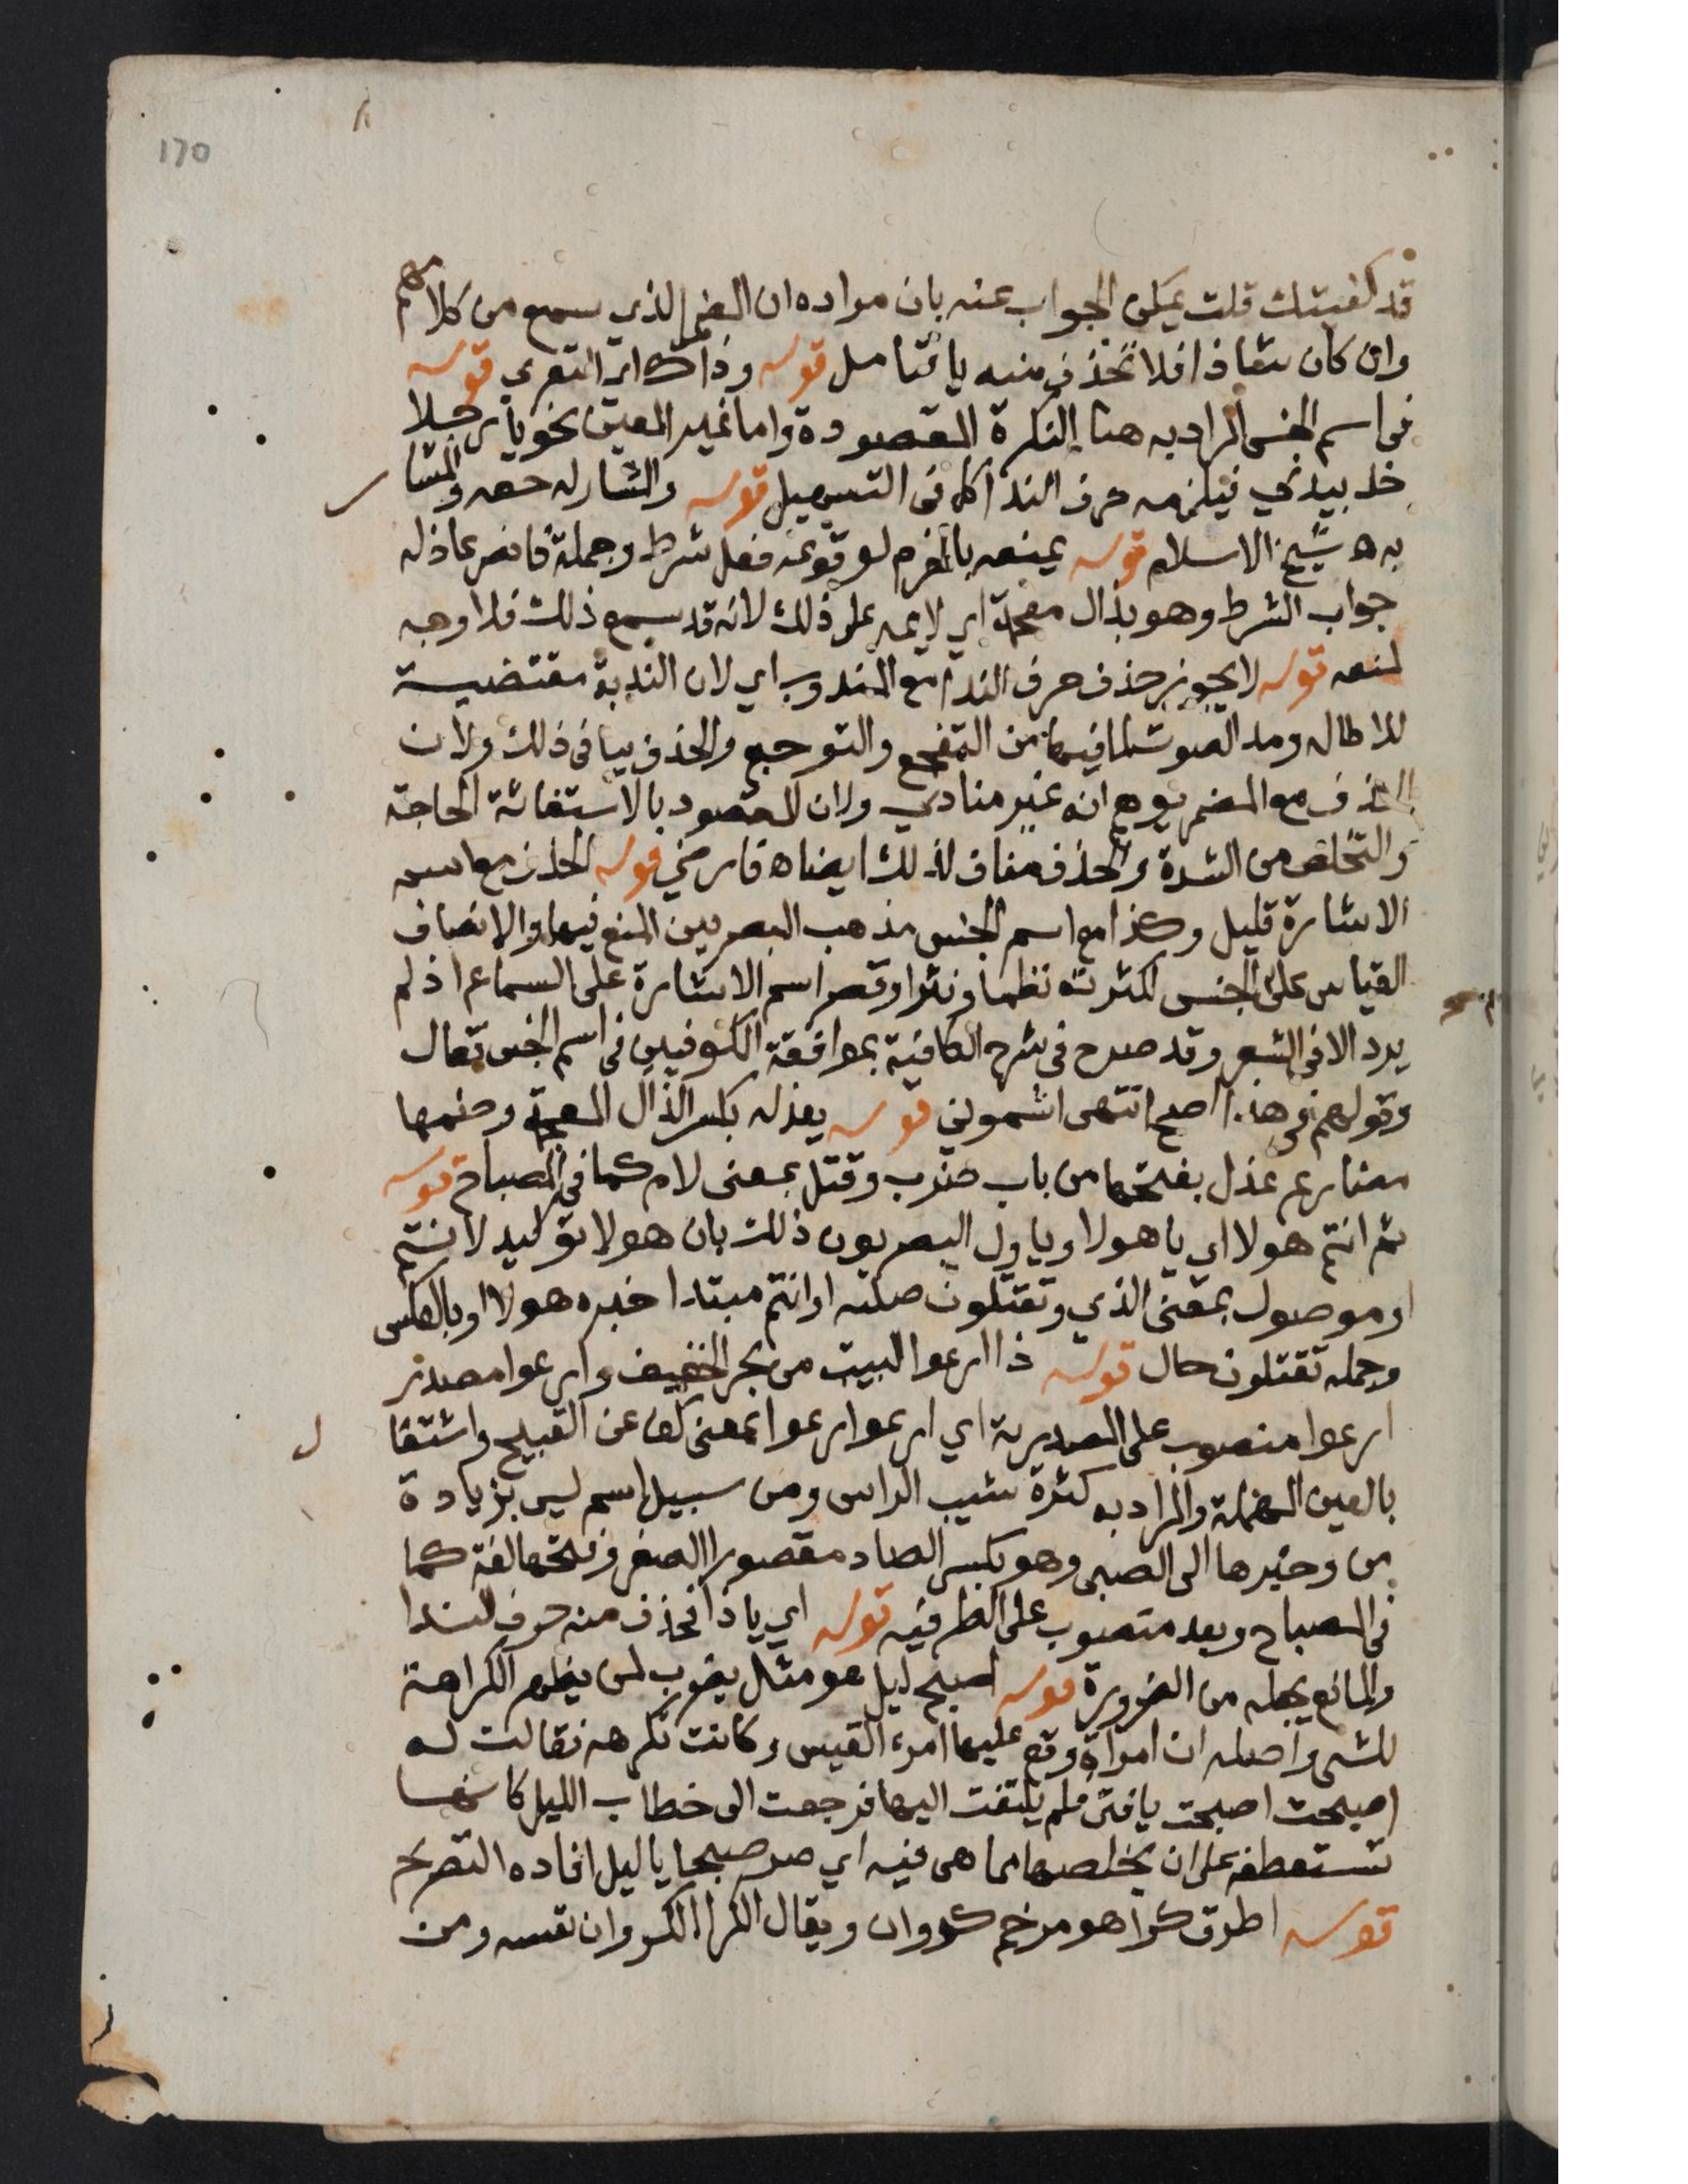 170
قد كفيتك قلت يمكن الجواب عنه بان مراده ان الضم الذي يسمع من كلامهم
وان كان شاذا فلا تحذف منه يا تامل قوله وذاك اي التعري قوله
في اسم الجنس المراد به هنا النكرة المقصودة واما غير المعين نحو يا رجلا
خذ بيدي فيلزمه حرف الندا كما في التسهيل قوله والمشار له حقه والمشار
به ه شيخ الاسلام قوله يمنعه بالجزم لوقوعه فعل شرط وجملة فانصر عاذله
جواب الشرط وهو بذال معجمة اي لايمه على ذلك لانه قد سمع ذلك فلا وجه
لمنعه قوله لا يجوز حذف حرف الندا مع المندوب اي لان الندبة مقتضية
للاطالة ومد الصوت لما فيها من التفجع والتوجع والحذف ينافي ذلك ولان
الحذف مع المضمر يوهم انه غير منادي ولان المقصود بالاستغاثة الحاجة
والتخلص من الشدة والحذف مناف لذلك ايضا ه فارضي قوله الحذف مع اسم
الاشارة قليل وكذا مع اسم الجنس مذهب البصريين المنع فيهما والانصاف
القياس على الجنس لكثرته نظما ونثرا وقصر اسم الاشارة على السماع اذ لم
يرد الا في الشعر وقد صرح في شرح الكافية بموافقة الكوفيين في اسم الجنس فقال
وقولهم في هذا اصح انتهى اشموني قوله يعذله بكسر الذال المعجمة وضمها
مضارع عذل بفتحها من باب ضرب وقتل بمعنى لام كما في المصباح قوله
ثم انتم هولا اي يا هولا وياول البصريون ذلك بان هولا توكيد لانتم
او موصول بمعنى الذي وتقتلون صلته او انتم مبتدا خبره هولا او بالعكس
وجملة تقتلون حال قوله ذا ارعوا البيت من بحر الخفيف وارعوا مصدر
ارعوا منصوب على المصدرية اي ارعوا ارعوا بمعنى كف عن القبيح واشتعا
ل
بالعين المهملة والمراد به كثرة شيب الراس ومن سبيل اسم ليس بزيادة
من وخبرها الى الصبى وهو بكسر الصاد مقصورا الصغر وفتحها لغة كما
في المصباح وبعد منصوب على الظرفية قوله اي يا ذا فحذف منه حرف الندا
والمانع يجعله من الضرورة قوله اصبح ليل هو مثل يضرب لمن يظهر الكراهة
للشي واصله ان امراة وقع عليها امرء القيس وكانت تكرهه فقالت له
اصبحت اصبحت يا فتى فلم يلتفت اليها فرجعت الى خطاب الليل كانها
تستعطفه على ان يخلصها مما هي فيه اي صر صبحا يا ليل افاده التصريح
قوله اطرق كرا هو مرخم كروان ويقال الكرا الكروان نفسه ومن